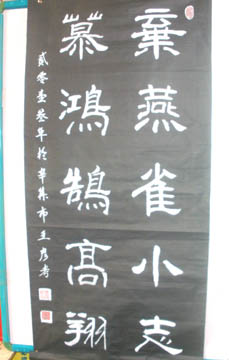 棄燕雀小志
慕鴻鵠高翔
貳零壹叁年於辛集市王彦考